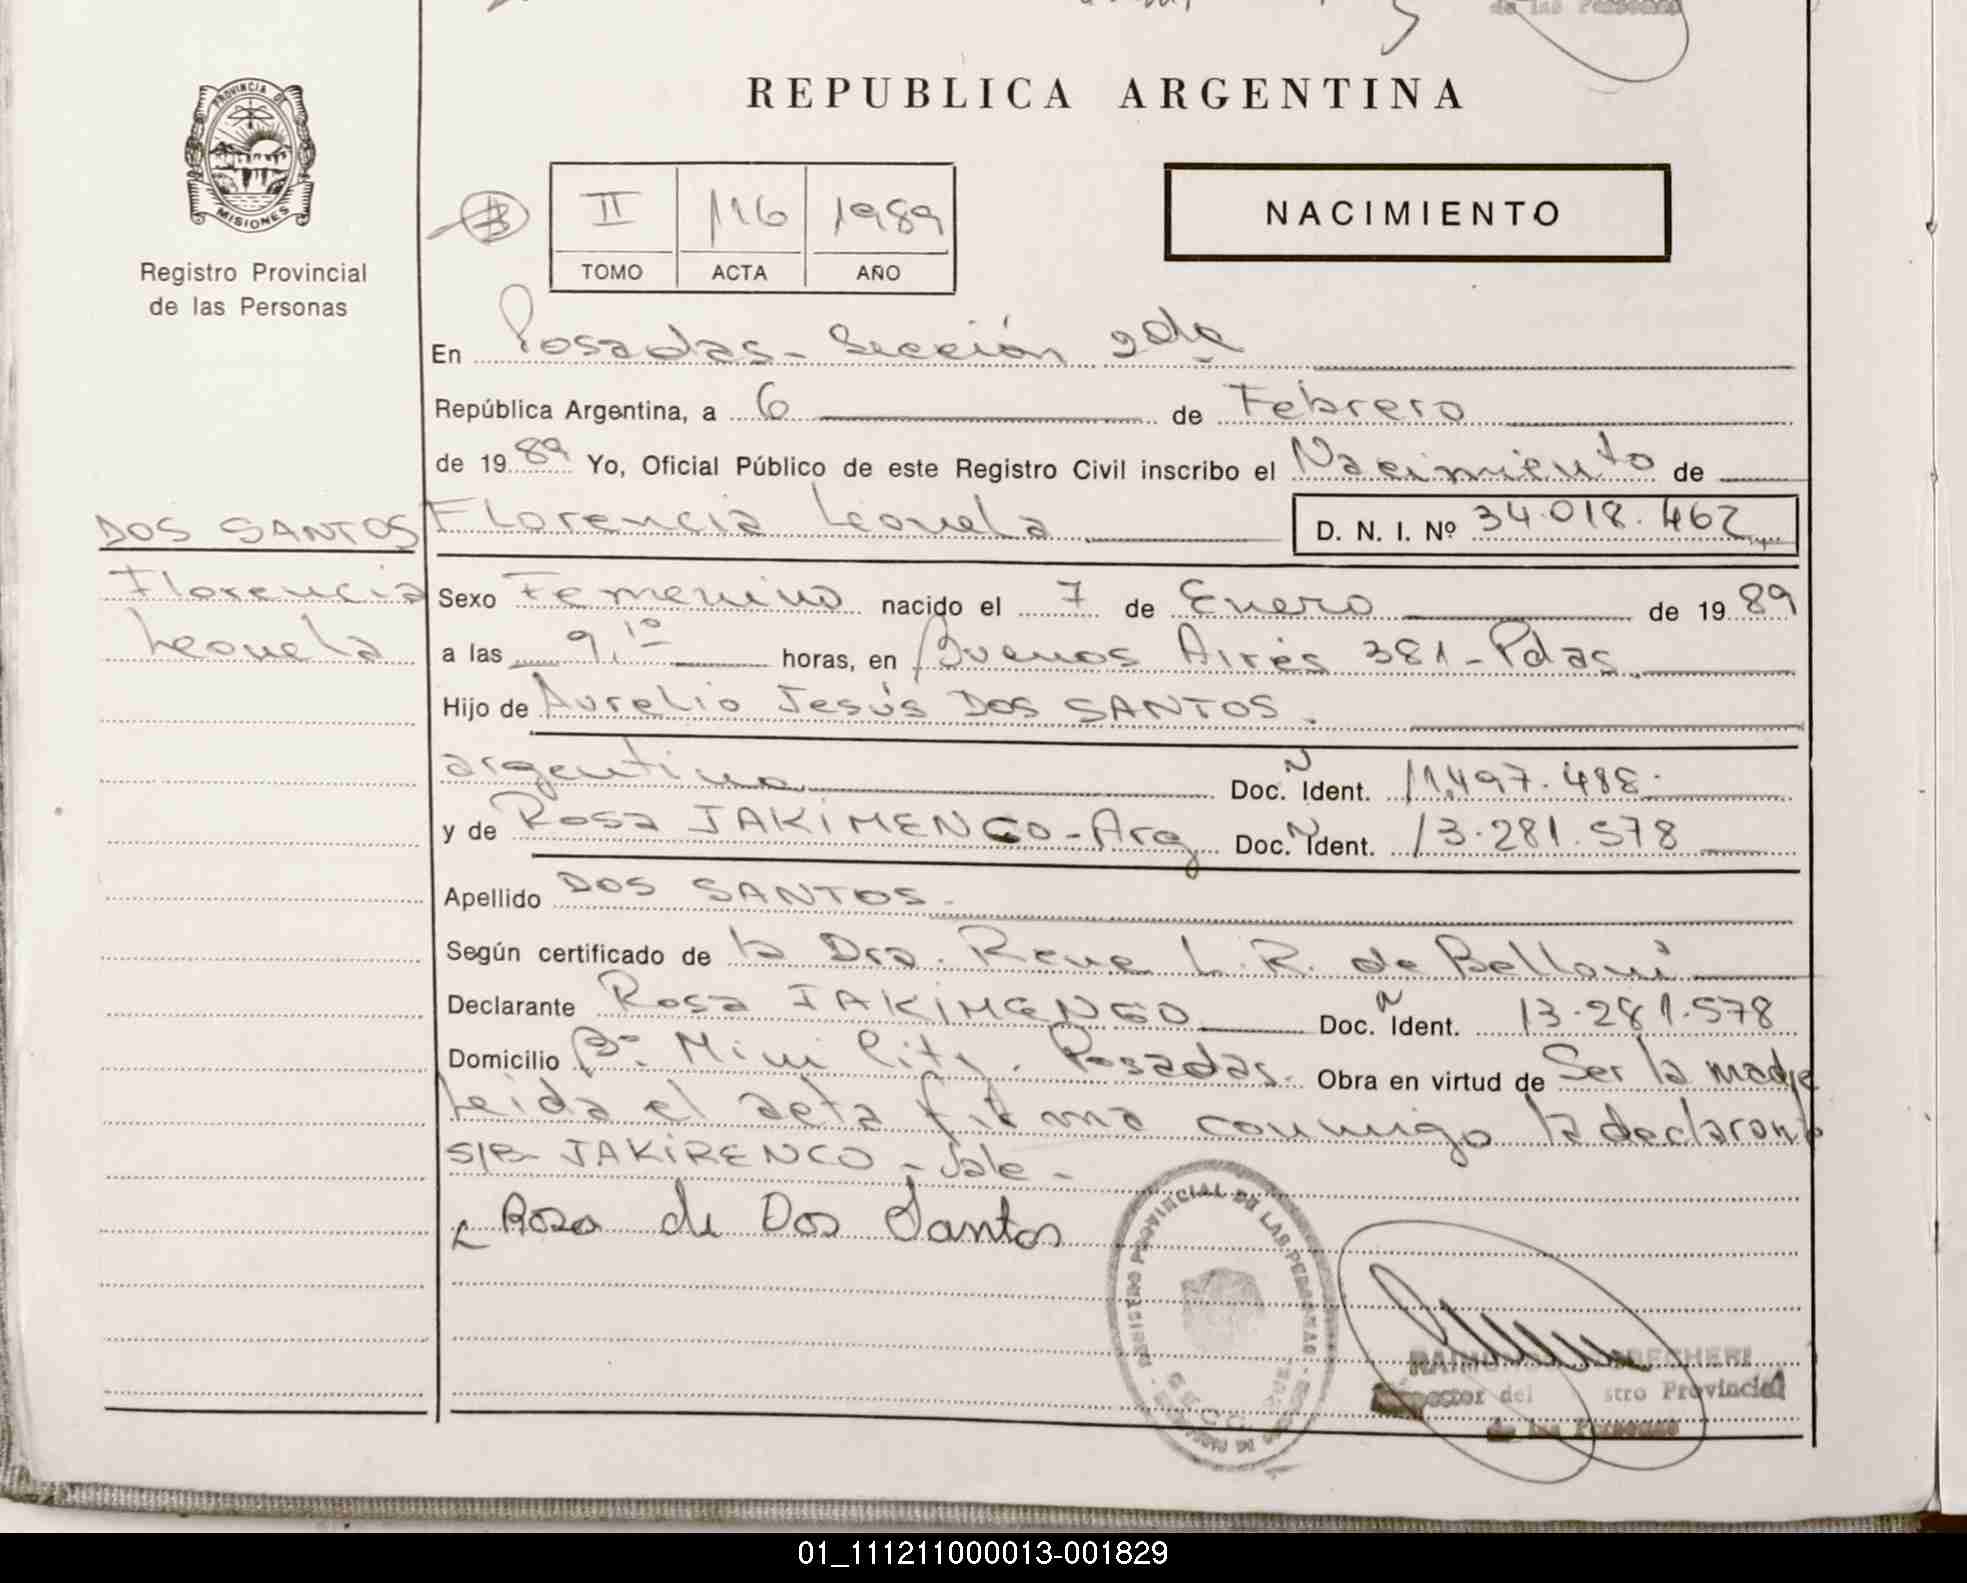 de las Personas
PROVINCIA DE
MISIONES
Registro Provincial
de las Personas
REPUBLICA ARGENTINA
II 116 1989
TOMO ACTA AÑO
NACIMIENTO
En Posadas - Sección 2da
República Argentina, a 6 de Febrero
de 1989 Yo, Oficial Público de este Registro Civil inscribo el Nacimiento de
DOS SANTOS
Florencia
Leonela
Florencia Leonela D. N. I. Nº 34.018.462
Sexo Femenino nacido el 7 de Enero de 1989
a las 9,10 horas, en Buenos Aires 381 - Pdas.
Hijo de Aurelio Jesús DOS SANTOS.
argentino Doc. N Ident. 11.497.488.
y de Rosa JAKIMENCO - Arg Doc. N Ident. 13.281.578
Apellido DOS SANTOS.
Según certificado de la Dra. Rene L. R. de Belloni
Declarante Rosa JAKIMENGO Doc. N Ident. 13.281.578
Domicilio Bº. Mini City. Posadas. Obra en virtud de Ser la madre
Leida el acta firma conmigo la declarante
S/B- JAKIRENCO - Vale -
Rosa de Dos Santos
REGISTRO PROVINCIAL DE LAS PERSONAS
del Registro Provincial
de las Personas
01_111211000013-001829